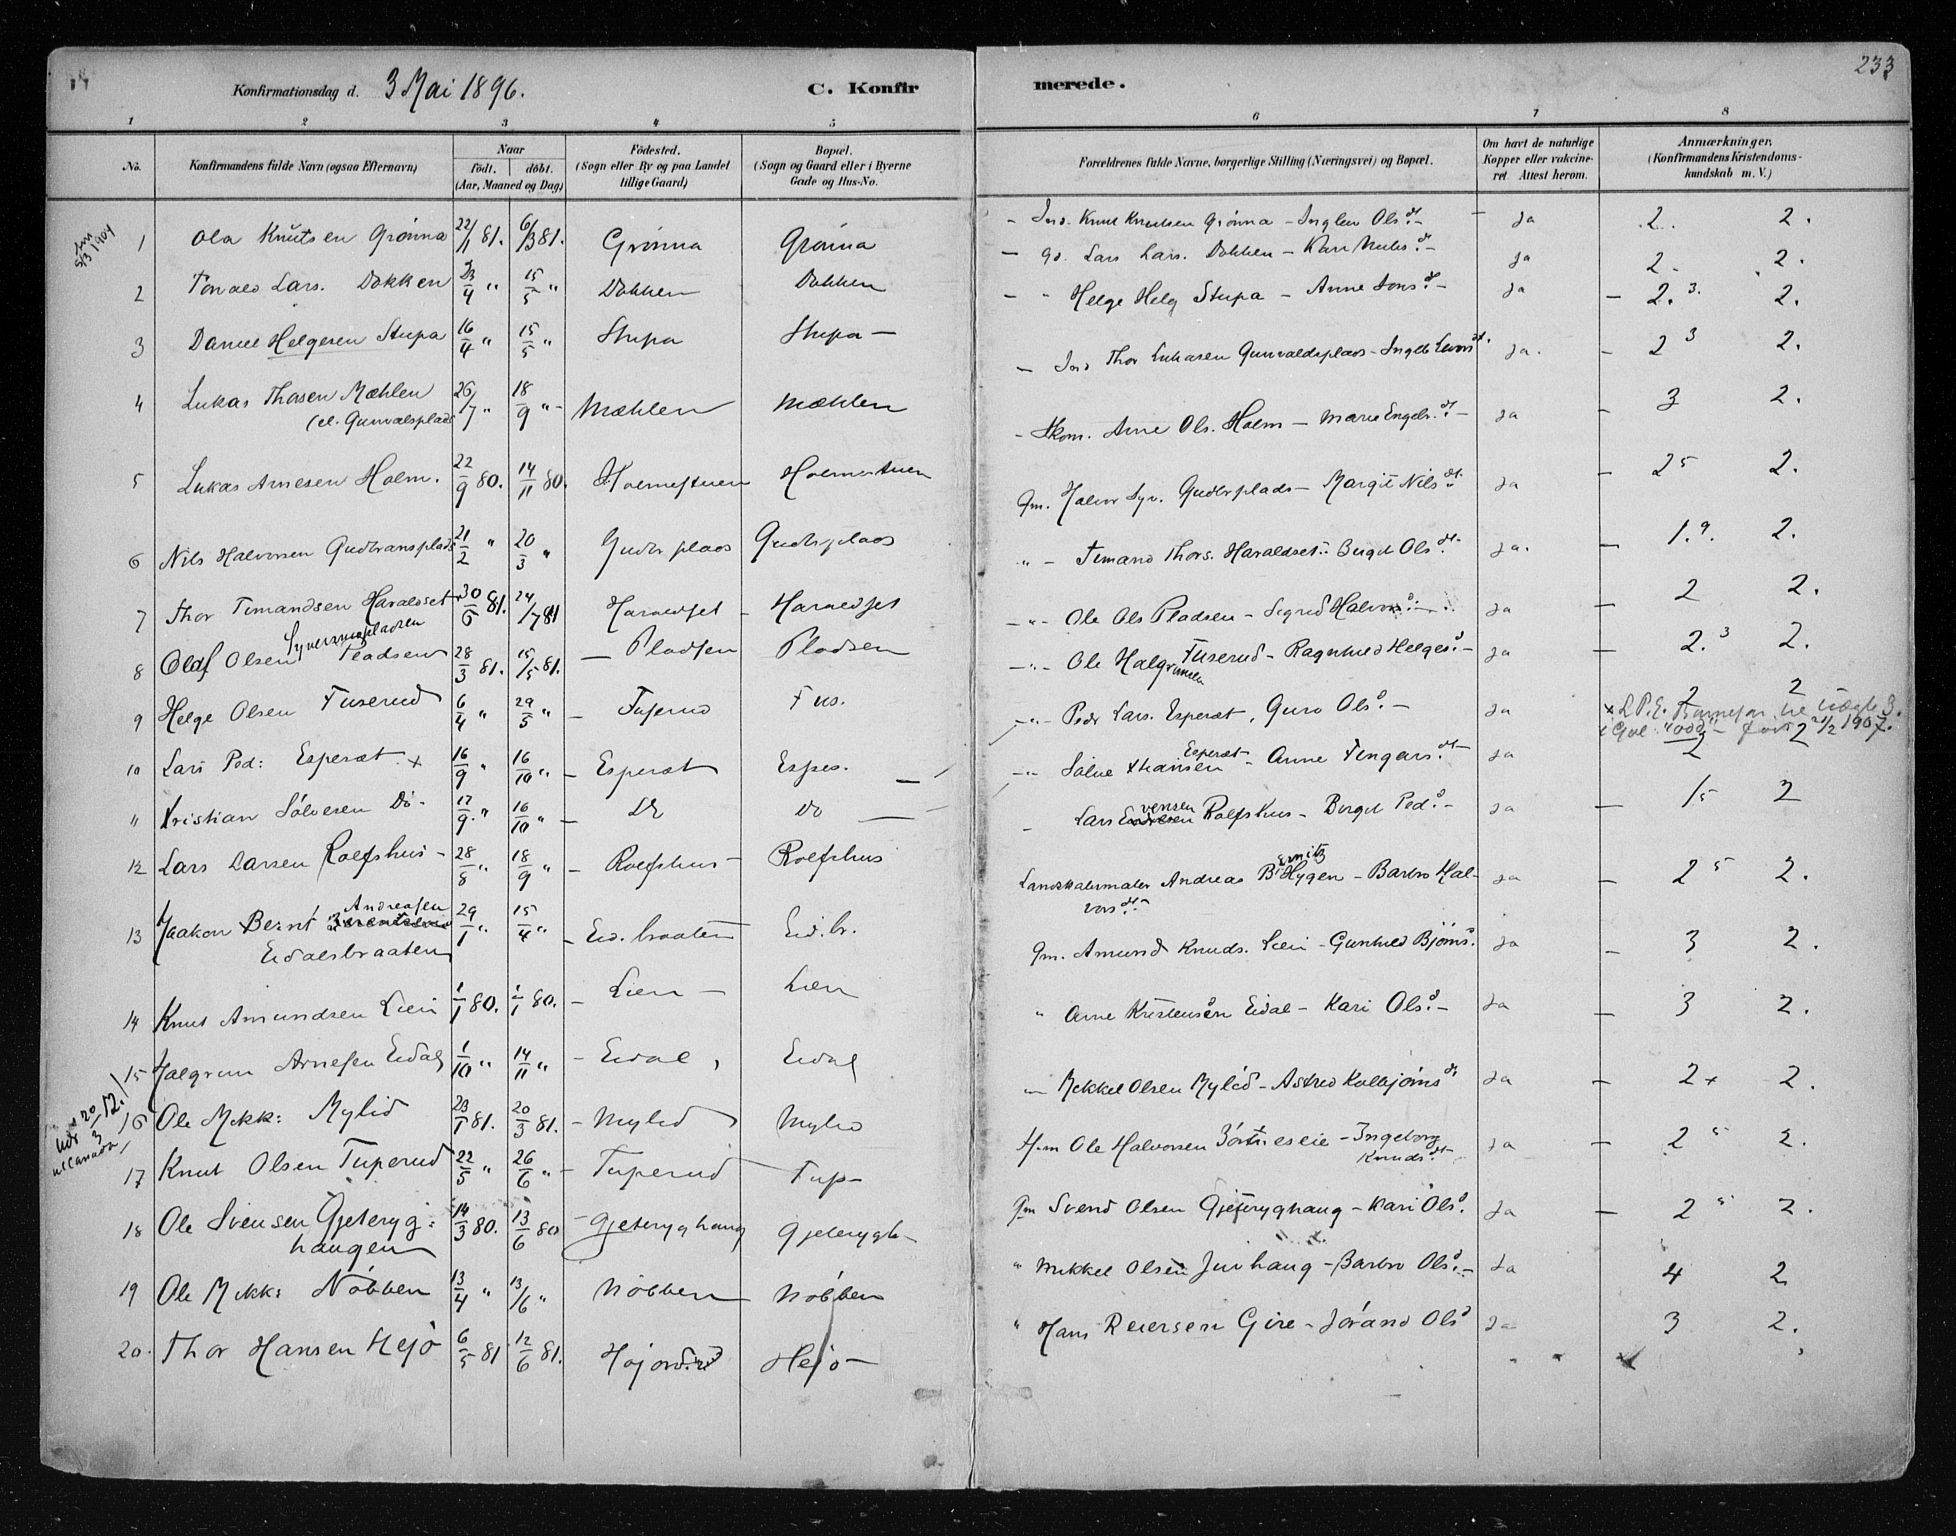 233
Konfirmationsdag d. 3 Mai 1896. C. Konfirmerede.
1 2 3 4 5 6 7 8
No. Konfirmandens fulde Navn (ogsaa Efternavn)
Naar født. døbt. (Aar, Maaned og Dag)
Fødested. (Sogn eller By og paa Landet tillige Gaard)
Bopæl. (Sogn og Gaard eller i Byerne Gade og Hus-No.
Forældrenes fulde Navne, borgerlige Stilling (Næringsvei) og Bopæl.
Om havt de naturlige Kopper eller vakcineret. Attest herom.
Anmærkninger. (Konfirmandens Kristendomskundskab m. V.)
5/3 1904
1 Ola Knutsen Grønna 22/1 81. 6/3 81. Grønna Grønna
2 Lars. Dokken 23/4 " 15/5 " Dokken Dokken
3 Daniel Helgesen Stupa 16/4 " 15/5 " Stupa Stupa –
4 Lukas Thosen Mæhlen 26/7 " 18/9 " – Mæhlen Mæhlen
(el. Gunvalsplads
5 Lukas Arnesen Holm. 22/9 80. 14/11 80. Holmestuen Holmestuen
6 Nils Halvorsen Gudbransplads 21/2 " 20/3 " Gudbrplads Gudbrplads
7 Thor Timandsen Haraldset 30/6 81. 24/7 81 Haraldset – Haraldset
Syversvegpladsen
8 Olaf Olsen Pladsen 28/3 81. 15/5 81. – Pladsen Pladsen
9 Helge Olsen Fuserud 6/4 " 29/5 " – Fuserud Fus.
10 Lars Ped: Esperæt + 16/9 " 16/10 " – Esperæt Espes.
" Kristian Sølvesen Do. 17/9 " 16/10 " – Do Do
12 Lars Larsen Rolfshus – 28/8 " 18/9 " – Rolfshus – Rolfshus
Andreasen
13 Haakon Bernt 29/1 " 15/4 " – Eid.braaten Eid.br.
Eidalsbraaten
14 Knut Amundsen Lien 1/1 80. 1/1 80. – Lien – Lien
15 Halgrim Arnesen Eidal 1/10 " 14/11 " – Eidal Eidal
16 Ole Mikk: Mylid 23/1 81. 20/3 81. – Mylid Mylid
17 Knut Olsen Tuperud 22/5 " 26/6 " – Tuperud Tup–
18 Ole Svensen Gjeteryg: 14/3 80. 13/6 80 – Gjeteryghaug Gjeterygh–
haugen
19 Ole Mikk: Nøbben 13/4 " 13/6 " Nøbben Nøbben
20. Thor Hansen Hejø 6/5 81 12/6 81. Hejø –
Udv 20/3 12.
til Canada
– Ind. Knut Knutsen Grønna – Ols.dt – Ja 2. 2.
– Gd. Lars Lars. Dokken – Kari d – Ja 2. 2.
– " Helge Helg Stupa – Anne d – Ja – 2.3. 2.
– Ind Thor Lukasen Gunvaldsplads – dt. Ja. – 2 3 2.
– Skom. Arne Ols. Holm – Marie Engebr. dt – Ja – 3 2.
Gm. Halvor Syv. Gudbrplads – Margit Nils dt. Ja – 25 2.
" – Timand Thors. Haraldset – Birgit Ols dt. Ja. – 1.9. 2.
– " – Ole Ols Pladsen – Sigrid Halvors Ja – 2 2.
– " – Ole Halgrimsen Fuserud – Ragnhild Helges.d – Ja – 2.3 2.
– " – Pedr Lars. Esperæt, Guro Ols.d – Ja 2 2
x L. P. E.
1907.
– " – Sølve Kristiansen Esperæt – Anne Fingars.dt Ja 2 2
– Lars Rolfshus – Birgit Ped.d – Ja – 15 2
Landskabsmaler Andreas B. Hygen – Barbro Halvors.dt – Ja – 25 2.
Gm. Amund Knuds. Lien – Gunhild Bjørns.d Ja – 3 2.
" Arne Kristensen Eidal – Kari Ols.d – Ja – 3 2.
– Mikkel Olsen Mylid – Astrid Kolbjørns dt Ja – 2+ 2.
H.m Ole Halvorsen – Ingeborg Knuds.dt – Ja – 25 2.
Gm Svend Olsen Gjeteryghaug – Kari Ols.d Ja – 25 2.
" Mikkel Olsen Juvhaug – Barbro Ols.d – Ja 4 2
" Hans Reiersen Gire – Jørand Olsd Ja 3 2.